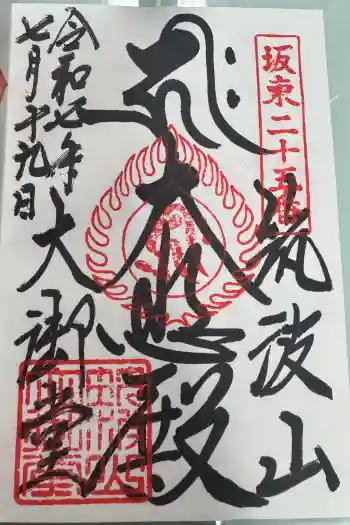 坂東二十五番
筑波山
大悲殿
大御堂
令和七年
七月十九日